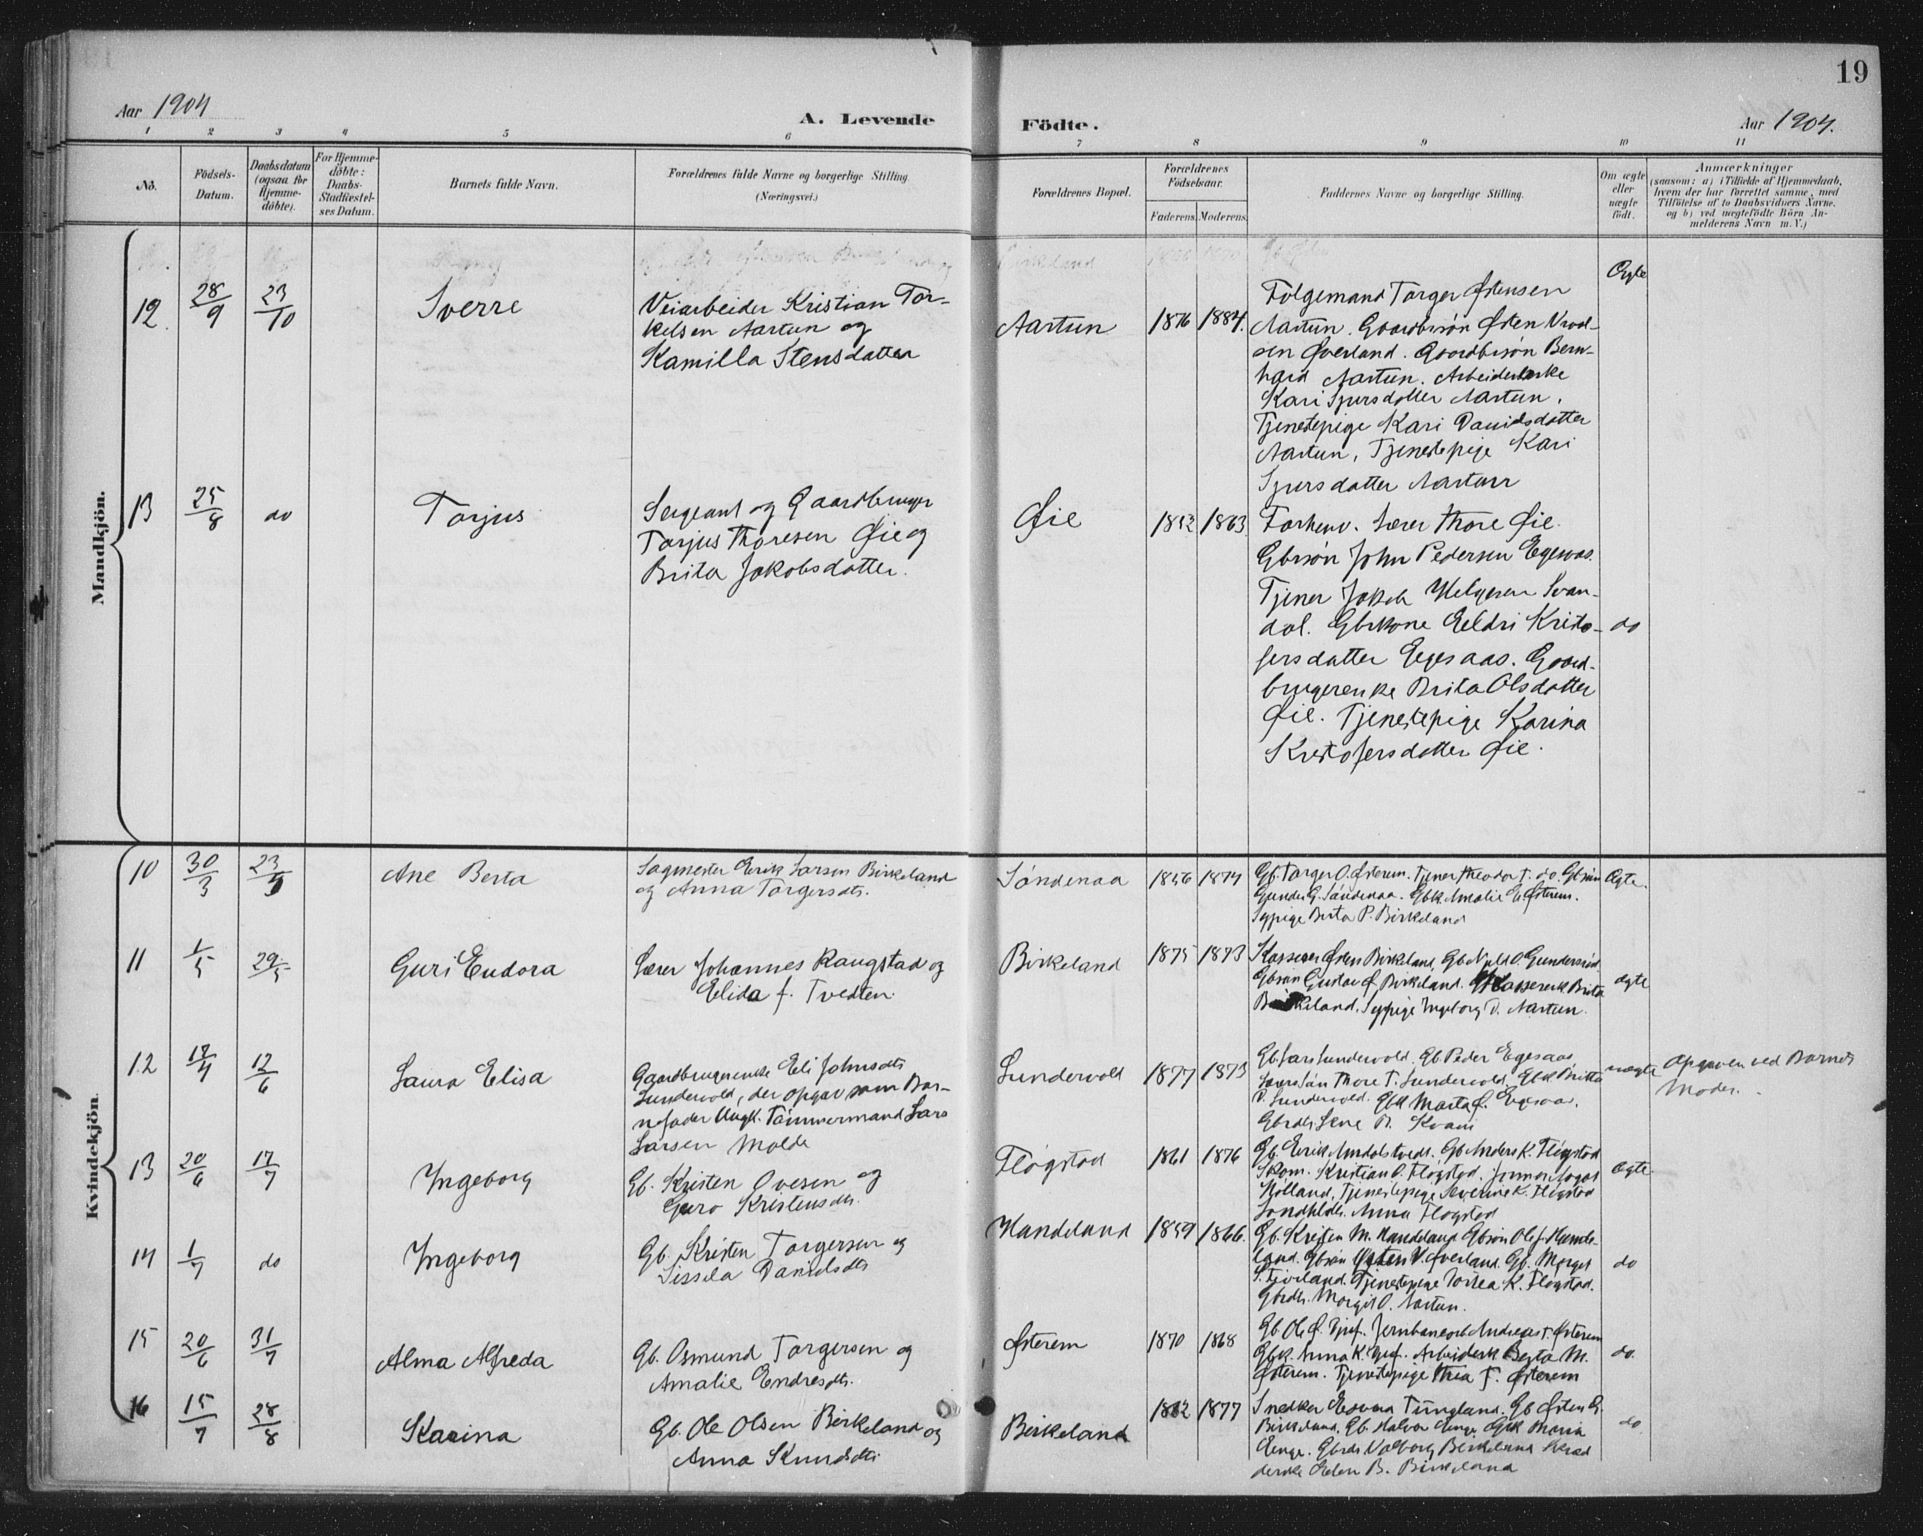 19
Aar 1904
A. Levende
Födte.
Aar 1904.
1 2 3 4 5 6 7 8 9 10 11
No.
Födsels-
Datum.
Daabsdatum
(ogsaa for
Hjemme-
döbte).
For Hjemme-
döbte:
Daabs-
Stadfæstel-
ses Datum.
Barnets fulde Navn.
Forældrenes fulde Navne og borgerlige Stilling
(Næringsvei.)
Forældrenes Bopæl.
Forældrenes
Födselsaar.
Faderens. Moderens.
Faddernes Navne og borgerlige Stilling.
Om ægte
eller
uægte
födt.
Anmærkninger
(saasom: a) i Tilfælde af Hjemmedaab,
hvem der har forrettet samme, med
Tilföielse af to Daabsvidners Navne,
og b) ved uægtefödte Börn An-
melderens Navn m. V.)
Mandkjön.
12. 28/9 23/10
Sverre
Veiarbeider Kristian Tor-
kelsen Aartun og
Kamilla Stensdatter
Aartun
1876 1884.
Folgemand Torger Østensen
Aartun. Gaardbrsøn Østen
Øverland. Gaardbrsøn Bern-
hard Aartun. Arbeiderenke
Kari Sjursdatter Aartun.
Tjenestepige Kari Davidsdatter
Aartun, Tjenestepige Kari
Sjursdatter Aartun
Ægte
13 25/8 do
Torjus
Sergeant og Gaardbruger
Torjus Thoresen Øie og
Brita Jakobsdatter.
Øie
1852 1863.
Forhenv. Lærer Thore Øie.
Gbrsøn John Pedersen Egesaas.
Tjener Jakob Helgesen Svan-
dal. Gbrkone Eeldri Kristo-
fersdatter Egesaas. Gaard-
brugerenke Brita Olsdatter
Øie. Tjenestepige Karina
Kristofersdatter Øie.
do
Kvindekjön.
10 30/3 23/
Ane Berta
Sagmester Eerik Larsen Birkeland
og Anna Torgersdtr.
Söndenaa
1856 1874
Gb. Torger O. Østerem. Tjener Theodor T. do. Gbrsøn
Gunder G. Söndenaa. Gbk Amalie E. Østerem.
Sypige Berta P. Birkeland
Ægte.
11 1/5 29/5
Guri Eudora
Lærer Johannes Raugstad og
Elida f. Tvedten
Birkeland
1875 1873
Kasserer Østen Birkeland, Gb O. Gundersröd
Gbrsøn Gustav Ø. Birkeland. Brita
Birkeland. Sypige Ingeborg D. Aartun.
ægte
12 17/4 12/6
Laura Elisa
Gaardbrugerenke Eli Johnsdtr
Sundervold, der opgav som Bar-
nefader Ungk. Tömmermand Lars
Larsen Molde
Sundervold
1877 1873
Gb. Lars Sundervold. Gb. Peder Egesaas
Lærersön Thore T. Sundervold. Gbk Britta
Sundervold. Gbk Marta J. Egesaas.
Gbrdtr Lene Kvam
uægte
Opgaven ved Barnets
Moder.
13 20/6 17/7
Ingeborg
Gb. Kristen Ovesen og
Guro Kristensdtr.
Flögstad
1861 1876
Gb. Eerik Amdalstvedt. Gb. Anders K. Flögstad
Skom. Kristian O. Flögstad.
Hölland, Tjenestepige Severine K. Flögstad
Anna Flögstad
Ægte.
14 1/7 do
Ingeborg
Gb. Kristen Torgersen og
Sissela Danielsdtr
Handeland
1859 1866.
Gb. Kristen M. Handeland Gbrsön Olef Hande-
land. Gbrsön Østen Øverland. Gb. Morget
Tjenestepige K. Flögstad.
Gbrdtr. Margit O. Aartun.
do
15 20/6 31/7
Alma Alfreda
Gb. Osmund Torgersen og
Amalie Endresdtr.
Østerem
1870 1868
Gb. Ole Ø. Jernbanearb Andreas T. Østerem
Gbk. Anna K. Arbeiderk Berta M.
Østerem. Tjenestepige Thea T. Østerem
do.
16 15/7 28/8
Karina
Gb. Ole Olsen Birkeland og
Anna Knudsdtr
Birkeland
1862 1877
Snedker Tungland. Gb Østen G.
Birkeland. Gb. Halvor Eenge, Gbk Maria
Eenge. Gbrdtr Valborg Birkeland
B. Birkeland
do